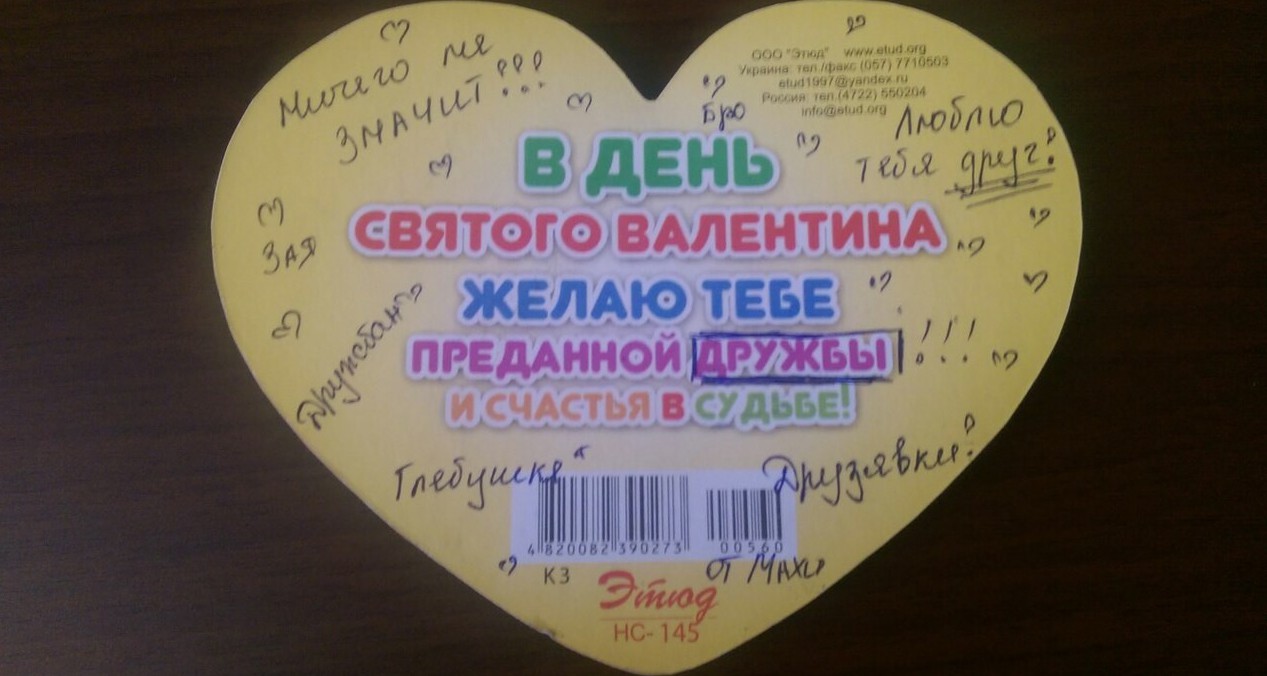 Ничего не
ЗНАЧИТ!!!
ООО "Этюд" www.etud.org
Украина: тел./факс (057) 7710503
etud1997@yandex.ru
Россия: тел.(4722) 550204
info@etud.org
Бро
Люблю
тебя друг!
В ДЕНЬ
СВЯТОГО ВАЛЕНТИНА
ЖЕЛАЮ ТЕБЕ
ПРЕДАННОЙ ДРУЖБЫ!!!
И СЧАСТЬЯ В СУДЬБЕ!
ЗАЯ
Дружбан
Глебушка
Друзявки!
4 820082 390273 00560
К3
от Махи
Этюд
НС-145